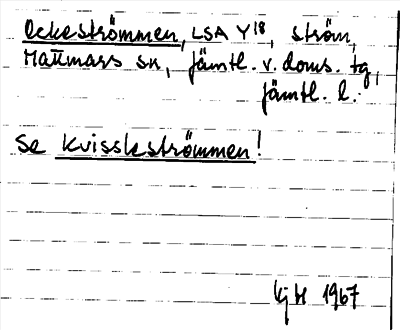 Ockeströmmen, LSA Y18, ström,
Mattmars sn, Jämtl. v. doms. tg,
Jämtl. l.
Se Kvissleströmmen!
KjH 1967